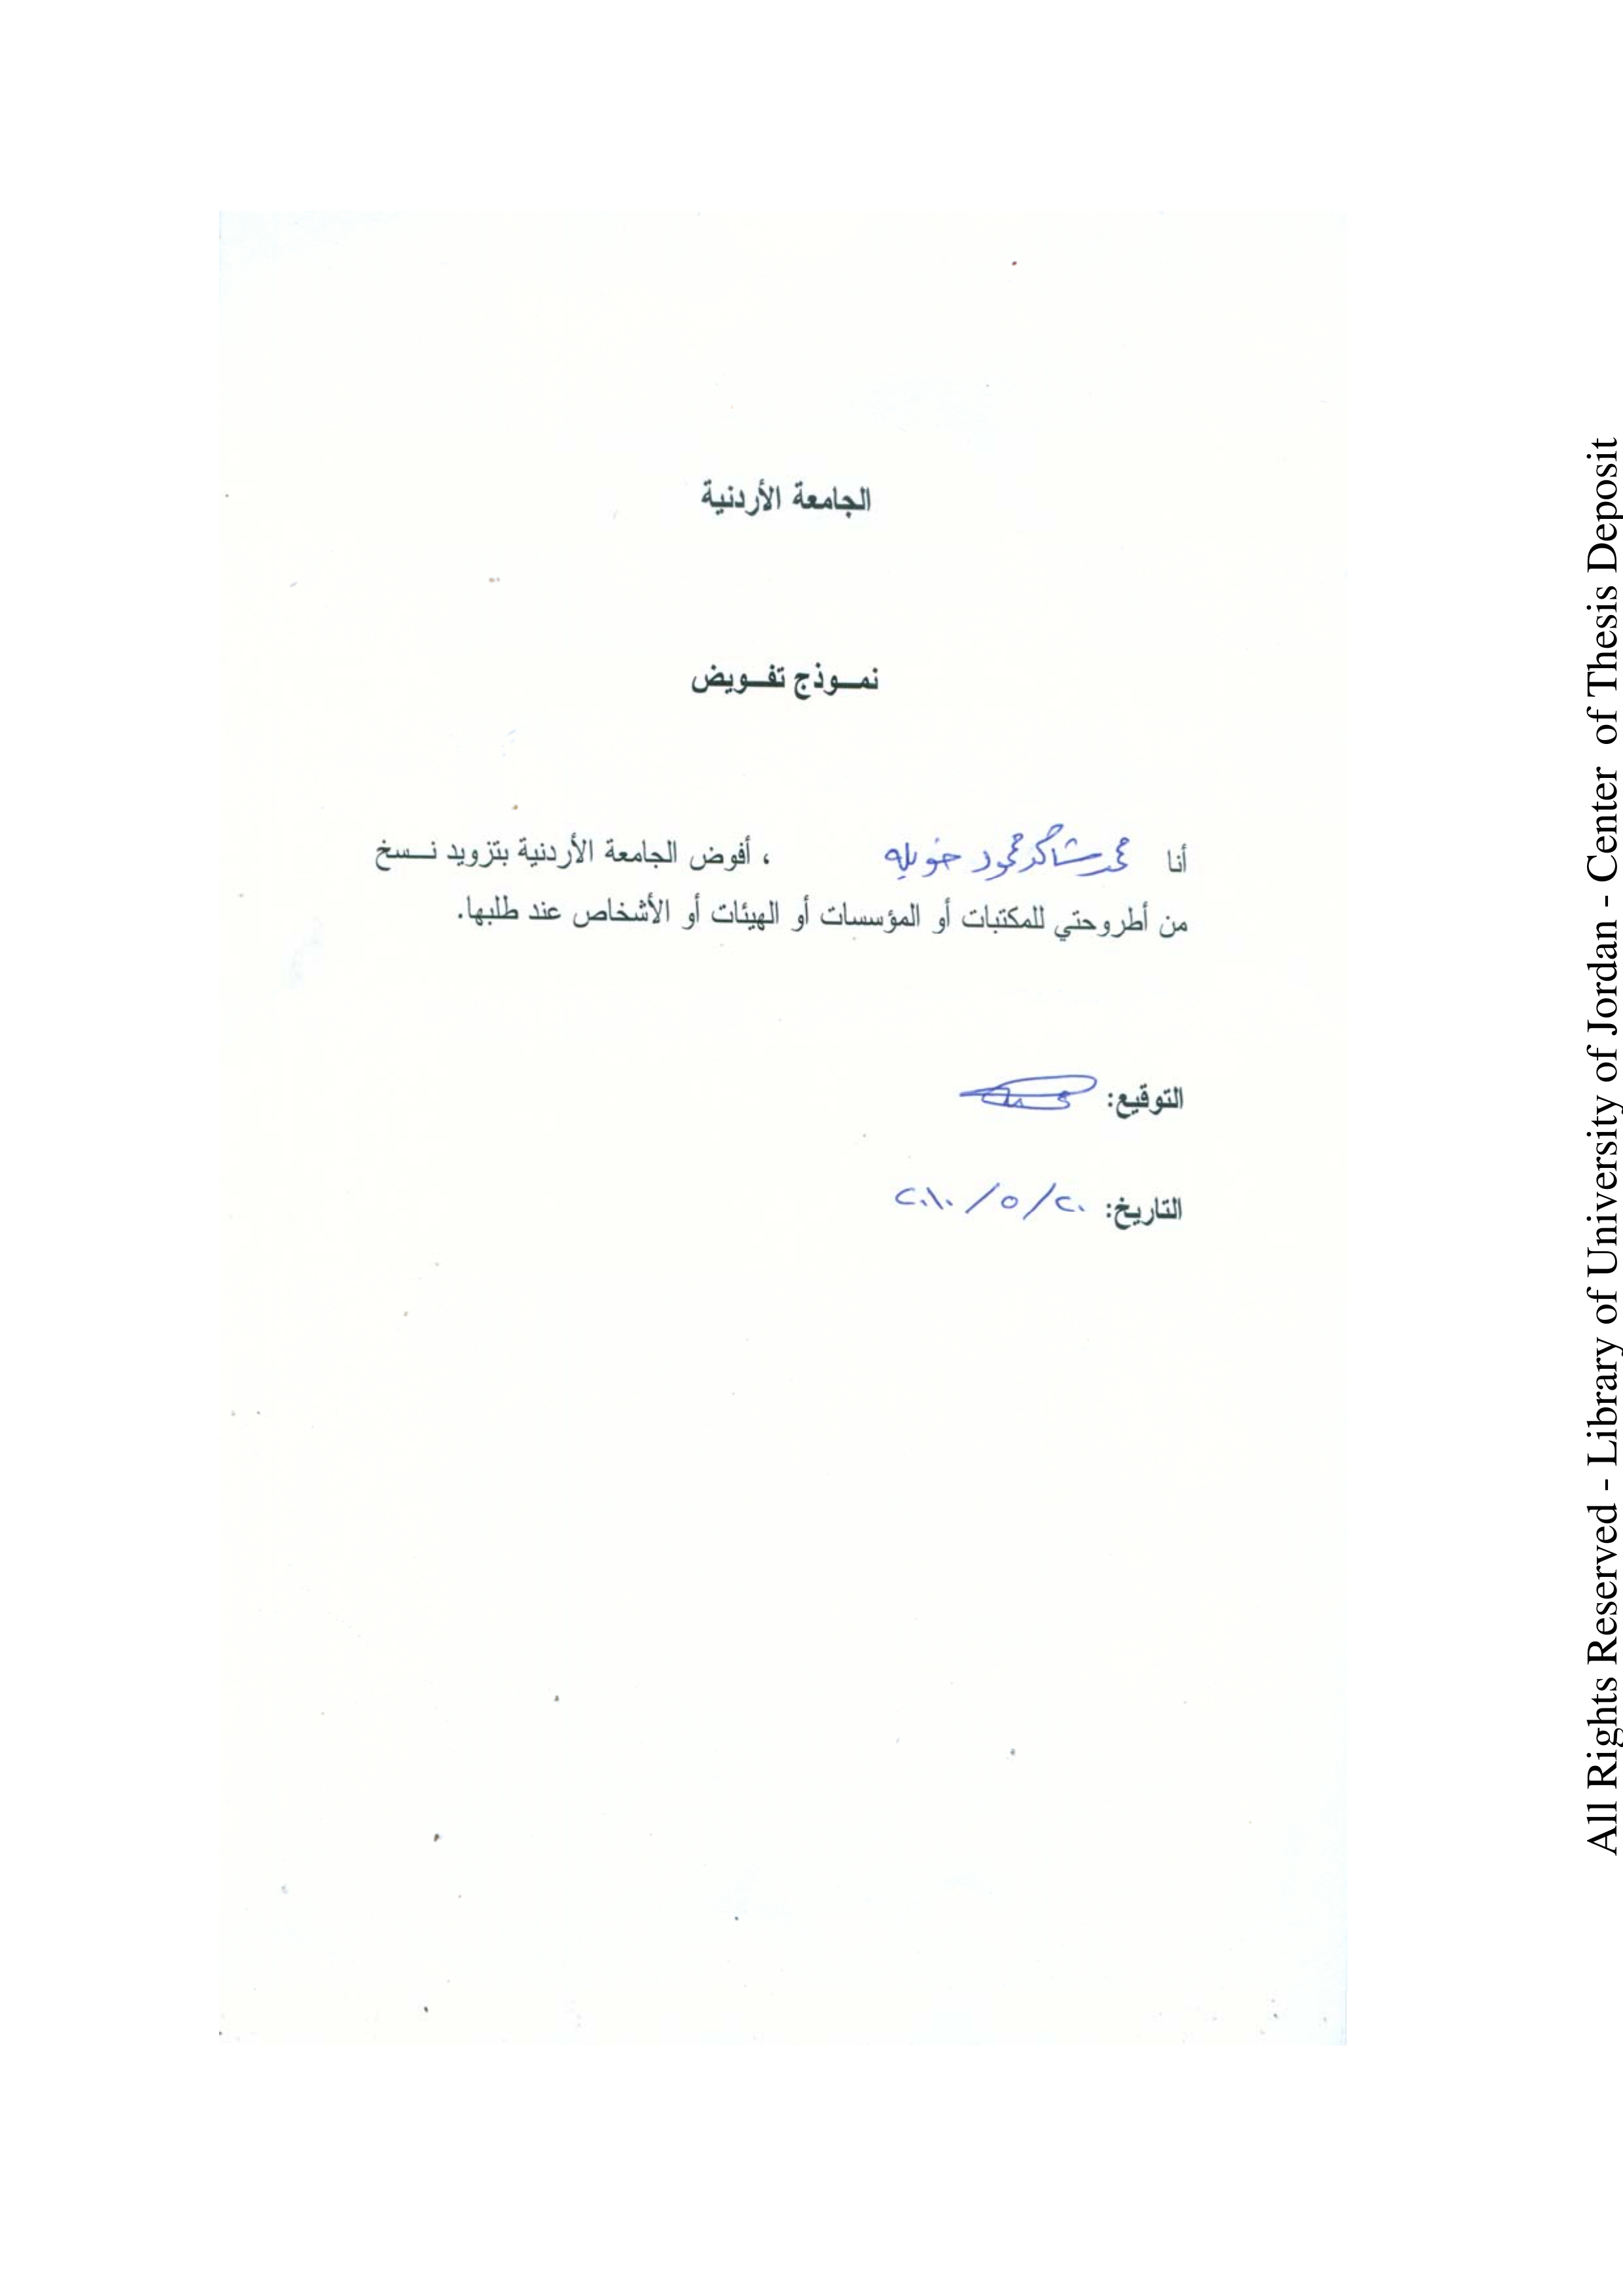 الجامعة الأردنية
نمـوذج تفـويض
أنا محمد شاكر محمود خويله ، أفوض الجامعة الأردنية بتزويد نـسخ
من أطروحتي للمكتبات أو المؤسسات أو الهيئات أو الأشخاص عند طلبها.
التوقيع:
التاريخ: ٢٠/ ٥/ ٢٠١٠
All Rights Reserved - Library of University of Jordan - Center of Thesis Deposit